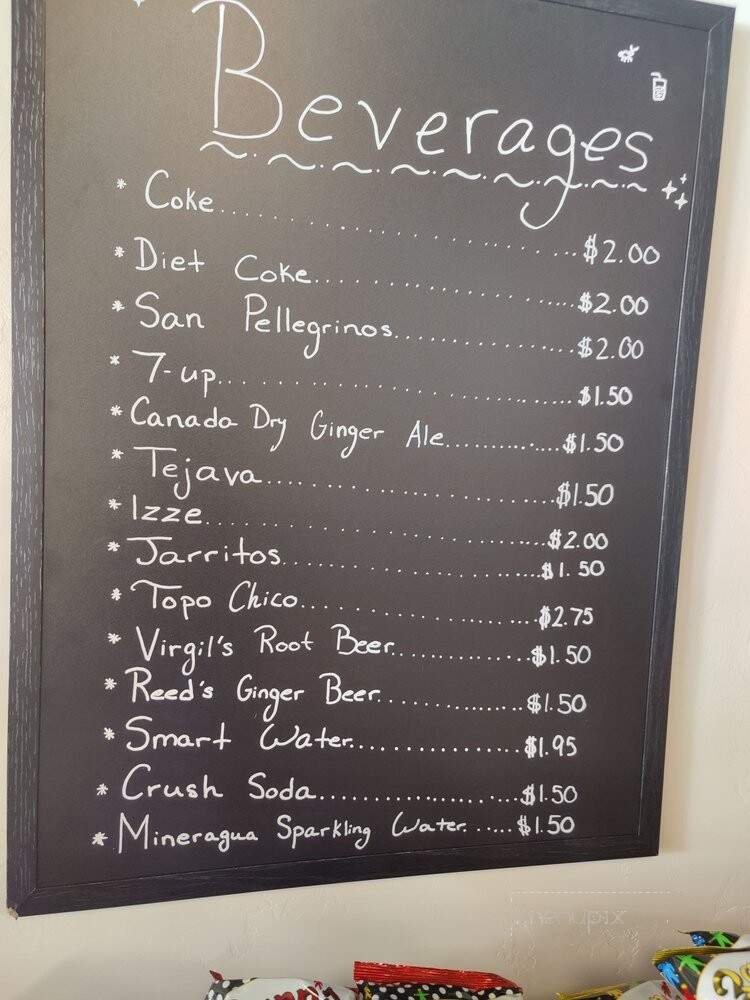 Beverages
* Coke $2.00
* Diet Coke $2.00
* San Pellegrinos $2.00
* 7-up $1.50
* Canada Dry Ginger Ale $1.50
* Tejava $1.50
* Izze $2.00
* Jarritos $1.50
* Topo Chico $2.75
* Virgil's Root Beer $1.50
* Reed's Ginger Beer $1.50
* Smart Water $1.95
* Crush Soda $1.50
* Mineragua Sparkling Water $1.50
menupix